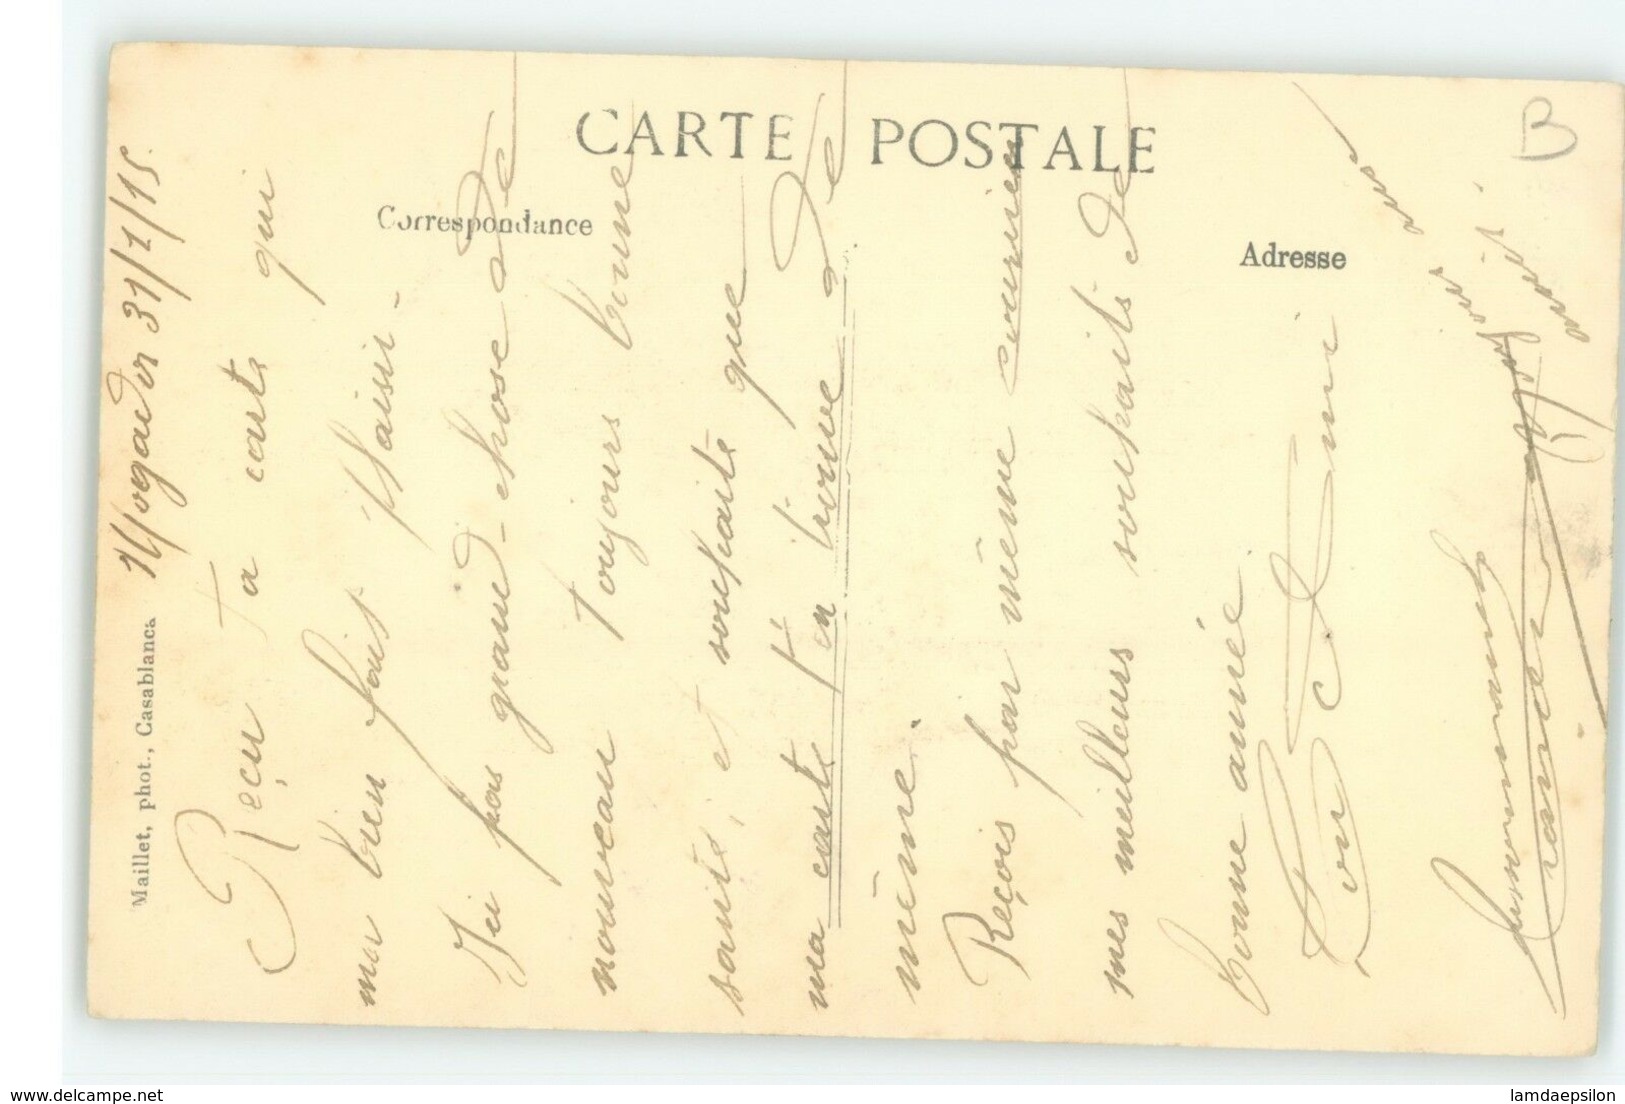 CARTE POSTALE
Correspondance
Adresse
B
Maillet, phot., Casablanca
Mogador 31/1/15
Reçu ta carte qui
ma bien fais plaisir -
Ici pas grand-chose de
nouveau toujours bonne
santé, et souhaite que
ma carte t'en trouve de
même.
Reçois par même courrier
mes meilleurs souhaits de
bonne année
Ton Ami
delcampe.net
lamdaepsilon